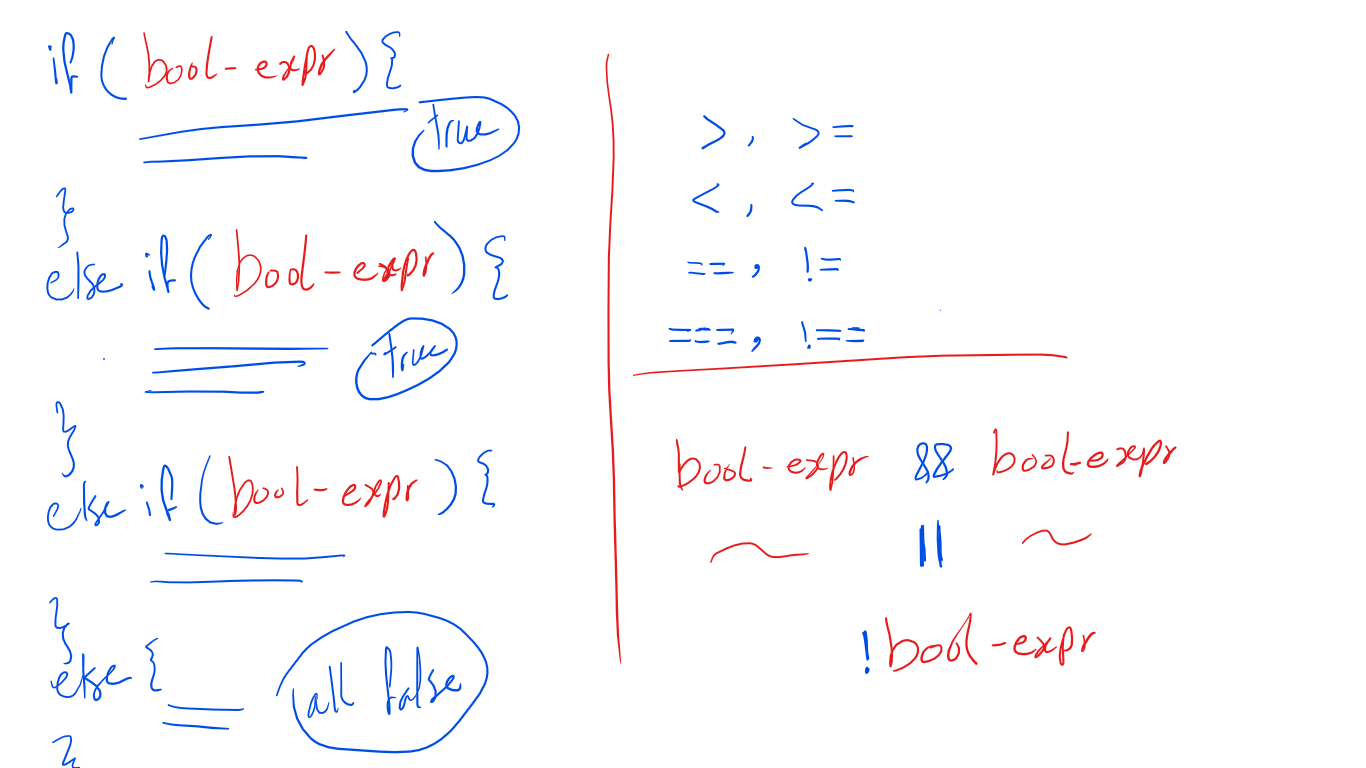 if ( bool-expr ) {
true
}
else if ( bool-expr ) {
true
}
else if ( bool-expr ) {
}
else {
all false
}
> , >=
< , <=
== , !=
=== , !==
bool-expr && bool-expr
||
!bool-expr